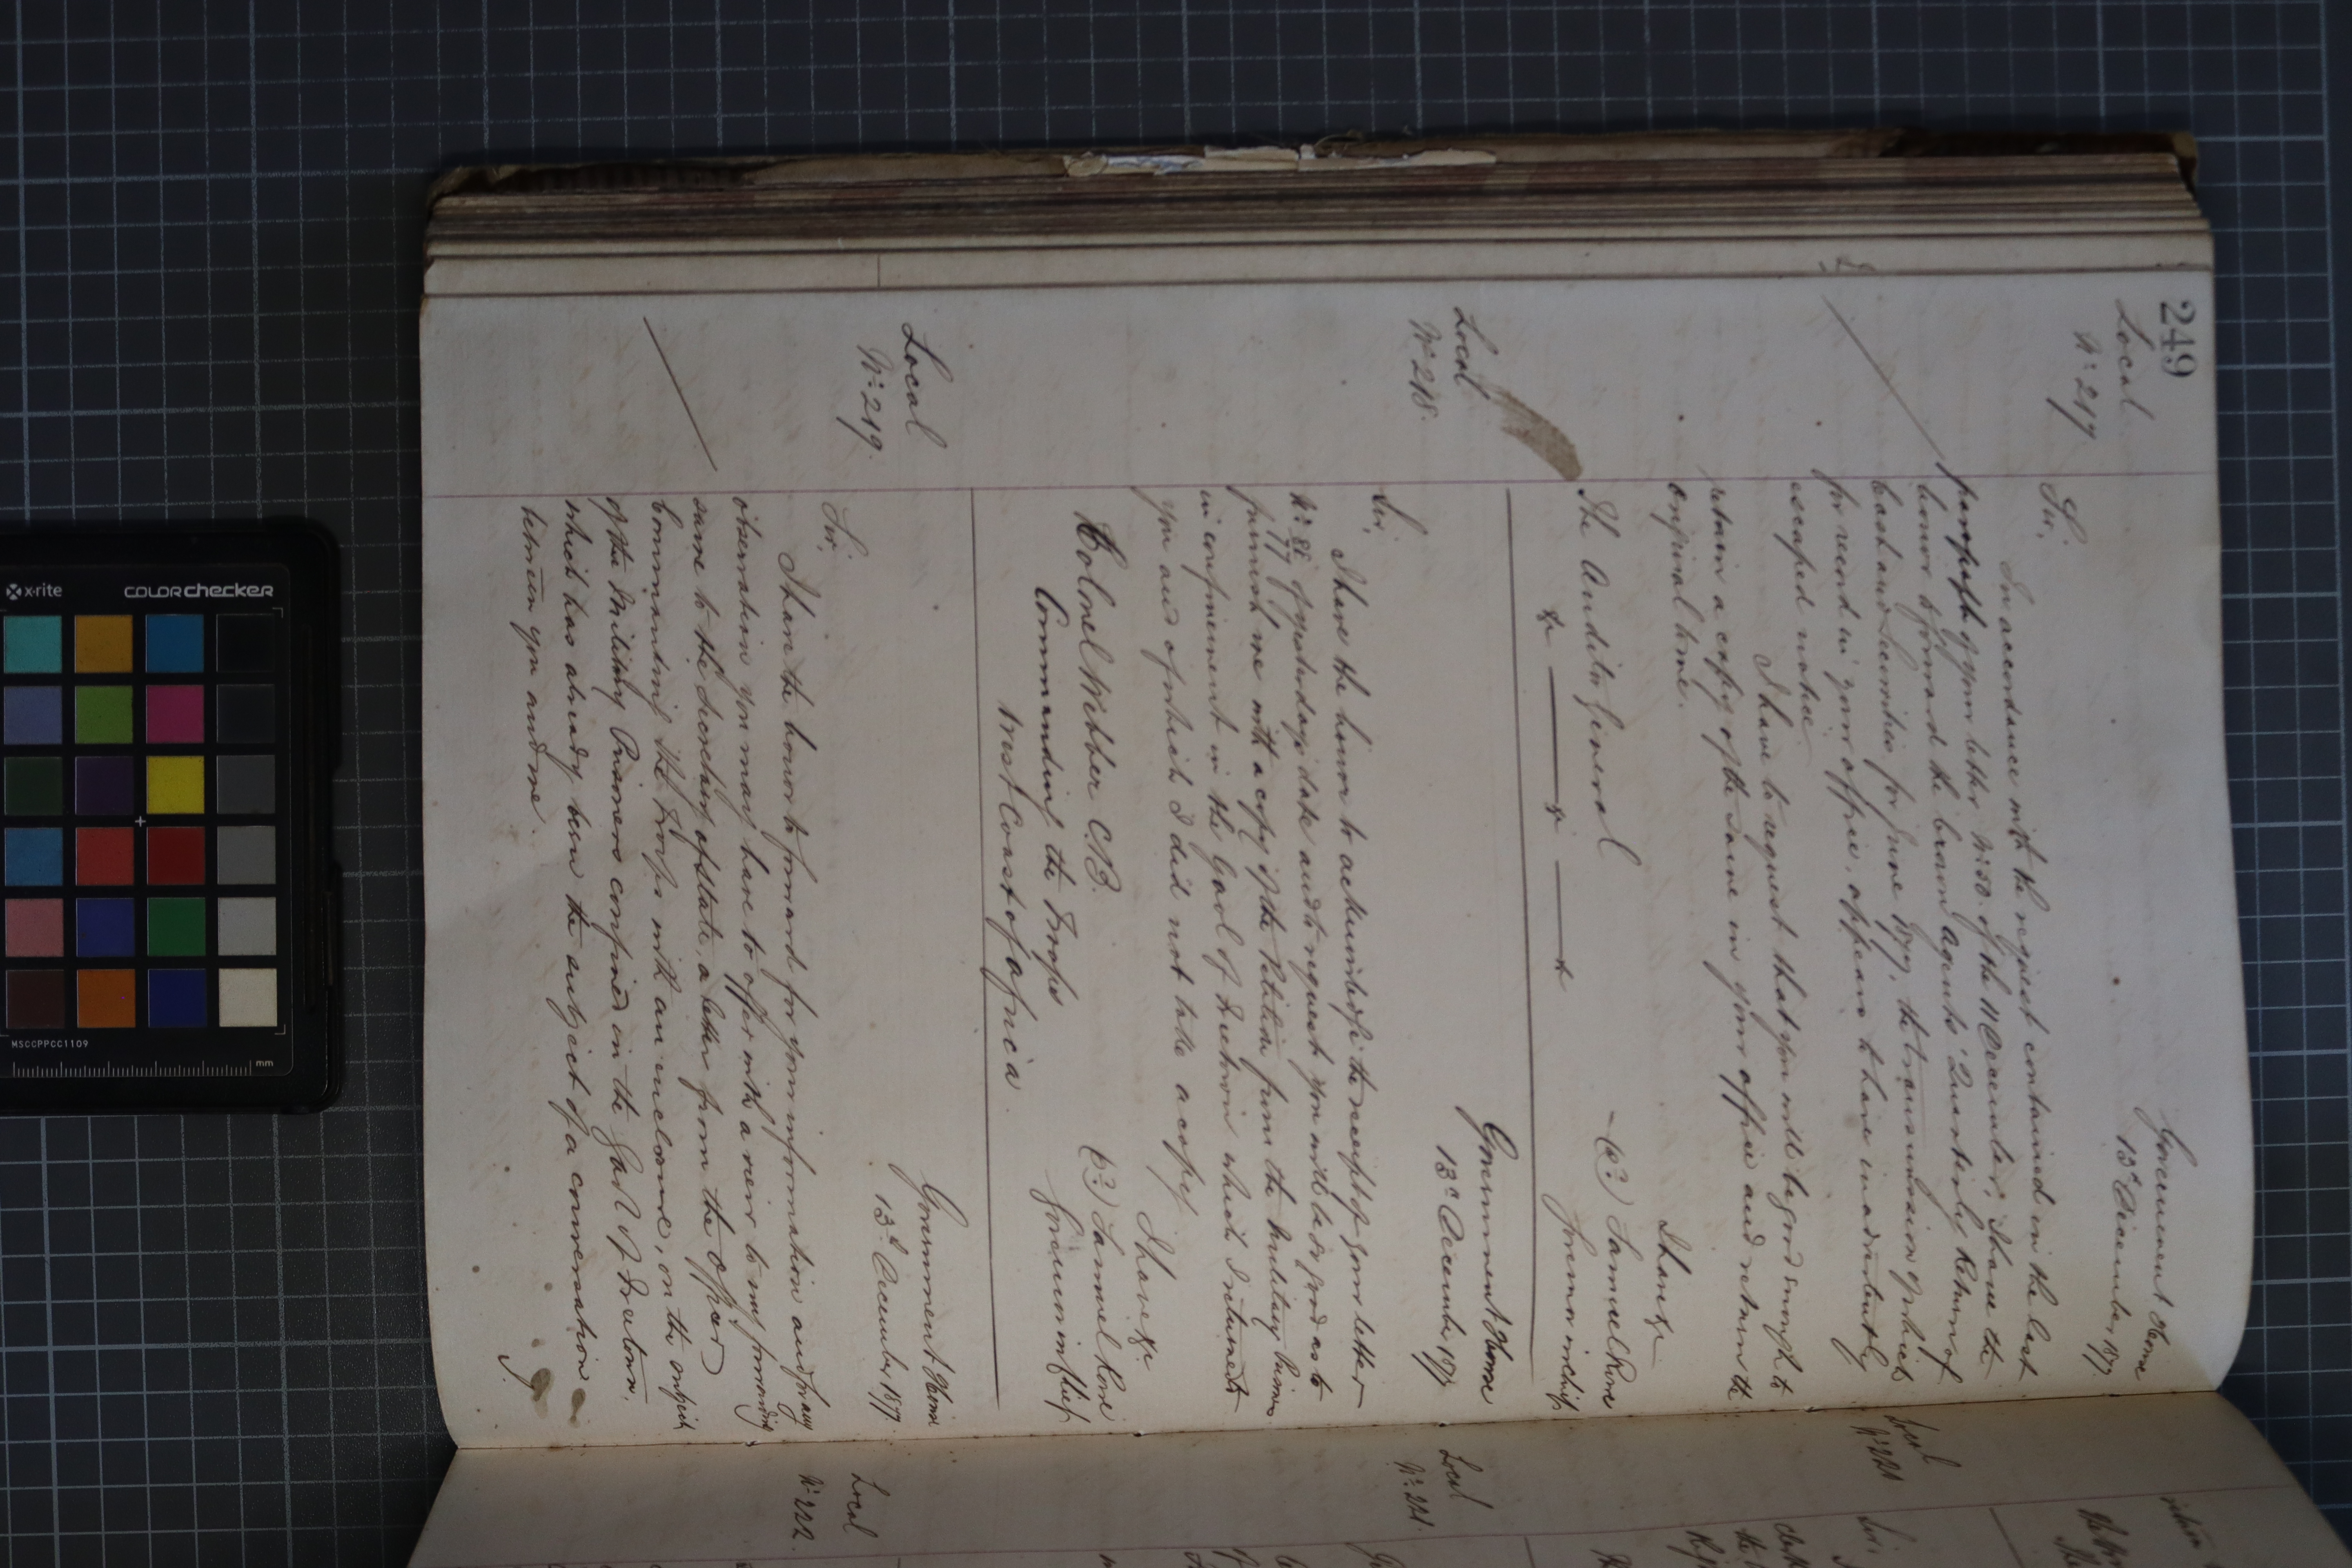 249
Local
No. 217
Government House
13th December 1877.
Sir,
In accordance with the request contained in the last
paragraph of your letter No. 50 of the 11 December, I have the
honor to forward the Crown Agents' Quarterly Return of
Cash and Securities for June 1877, the transmission of which
for record in your office, appears to have inadvertently
escaped notice
I have to request that you will be good enough to
retain a copy of the same in your office and return the
original to me.
I have &c
(Sd.) Samuel Rowe
Governor in Chief
The Auditor General
&c &c &c
Local
No. 218.
Government House
13th December 1877
Sir,
I have the honor to acknowledge the receipt of your letter
No. 88/77 of yesterday's date and to request you will be so good as to
furnish me with a copy of the Petition from the Military Prisoners
in confinement in the Gaol of Freetown which I returned to
you and of which I did not take a copy.
I have &c
(Sd.) Samuel Rowe
Governor in Chief
Colonel Webber C.B.
Commanding the Troops
West Coast of Africa.
Local
No. 219.
Government House
13th December 1877.
Sir,
I have the honor to forward for your information and for any
observation you may have to offer with a view to my forwarding
same to the Secretary of State, a letter from the Officer
Commanding the Troops with an enclosure, on the subject
of the Military Prisoners confined in the Gaol of Freetown,
which has already been the subject of a conversation
between you and me.
Local
No. 221
Local
No. 221.
Local
No. 222.
Sir